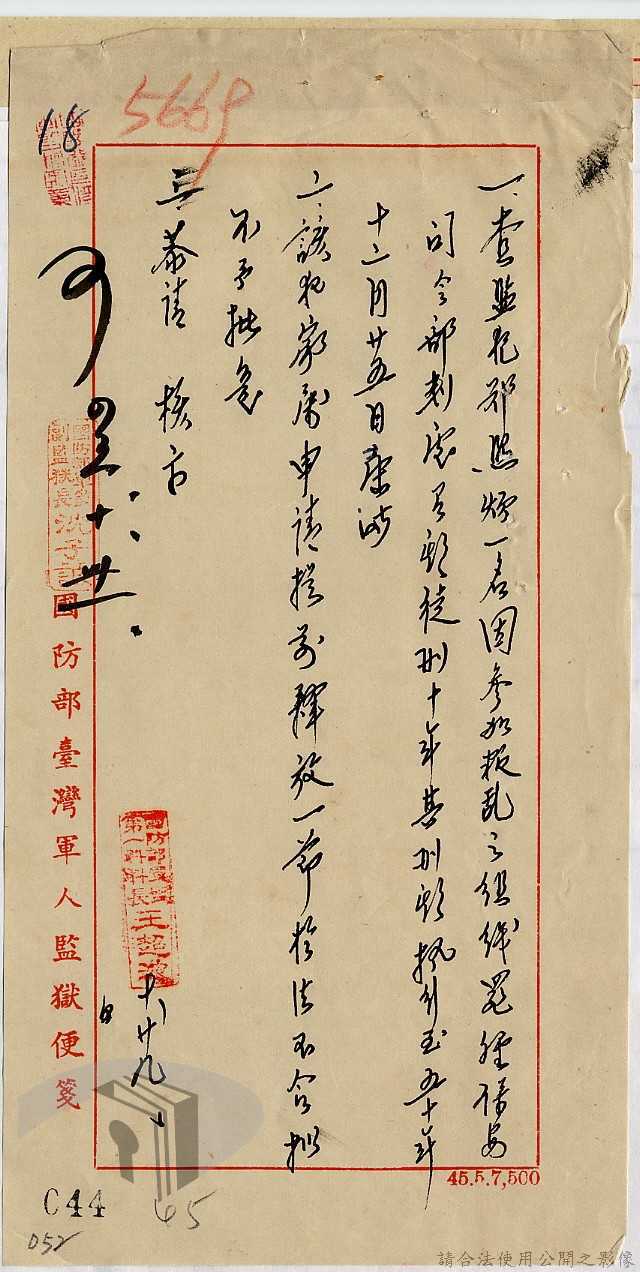 5669
18
一、查監犯鄭熙炳一名因參加叛亂之組織罪經保安
司令部判處有期徒刑十年其刑期執行至五十年
十二月廿五日屆滿
二、該犯家屬申請提前釋放一節於法不合擬
不予批氛
三、恭請　核示
王 十、廿九、
可 十、卅一、
國防部臺灣軍人監獄便箋
副監獄長沈
第一科科長王超
45.5.7,500
C44
45
052
請合法使用公開之影像